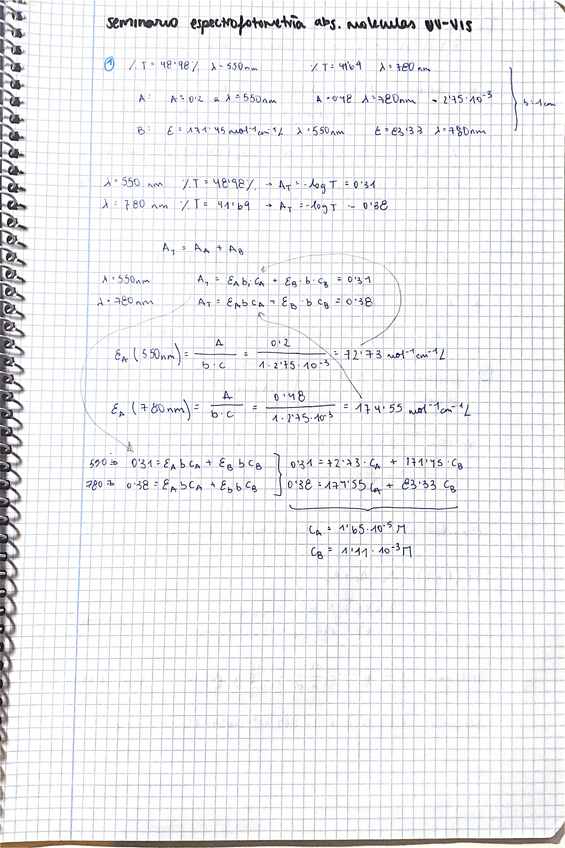 seminario espectrofotometría abs. moleculas UV-VIS
① %T = 48'98% λ = 550nm %T = 41'69 λ = 780 nm
A: A = 0'2 a λ = 550nm A = 0'48 λ = 780nm - 2'75·10⁻³
B: ε = 171'45 mol⁻¹cm⁻¹L λ = 550nm ε = 83'33 λ = 780nm
b = 1cm
λ = 550 nm %T = 48'98% → A_T = -log T = 0'31
λ = 780 nm %T = 41'69 → A_T = -log T = 0'38
A_T = A_A + A_B
λ = 550nm A_T = ε_A b, c_A + ε_B · b · c_B = 0'31
λ = 780nm A_T = ε_A b c_A + ε_B · b c_B = 0'38
ε_A (550nm) = A / b·c = 0'2 / 1·2'75·10⁻³ = 72'73 mol⁻¹cm⁻¹L
ε_A (780nm) = A / b·c = 0'48 / 1·2'75·10⁻³ = 174'55 mol⁻¹cm⁻¹L
550 → 0'31 = ε_A b c_A + ε_B b c_B ] 0'31 = 72'73 · c_A + 171'45 · c_B
780 → 0'38 = ε_A b c_A + ε_b b c_B ] 0'38 = 174'55 c_A + 83'33 c_B
c_A = 1'65·10⁻⁵ M
c_B = 1'11·10⁻³ M